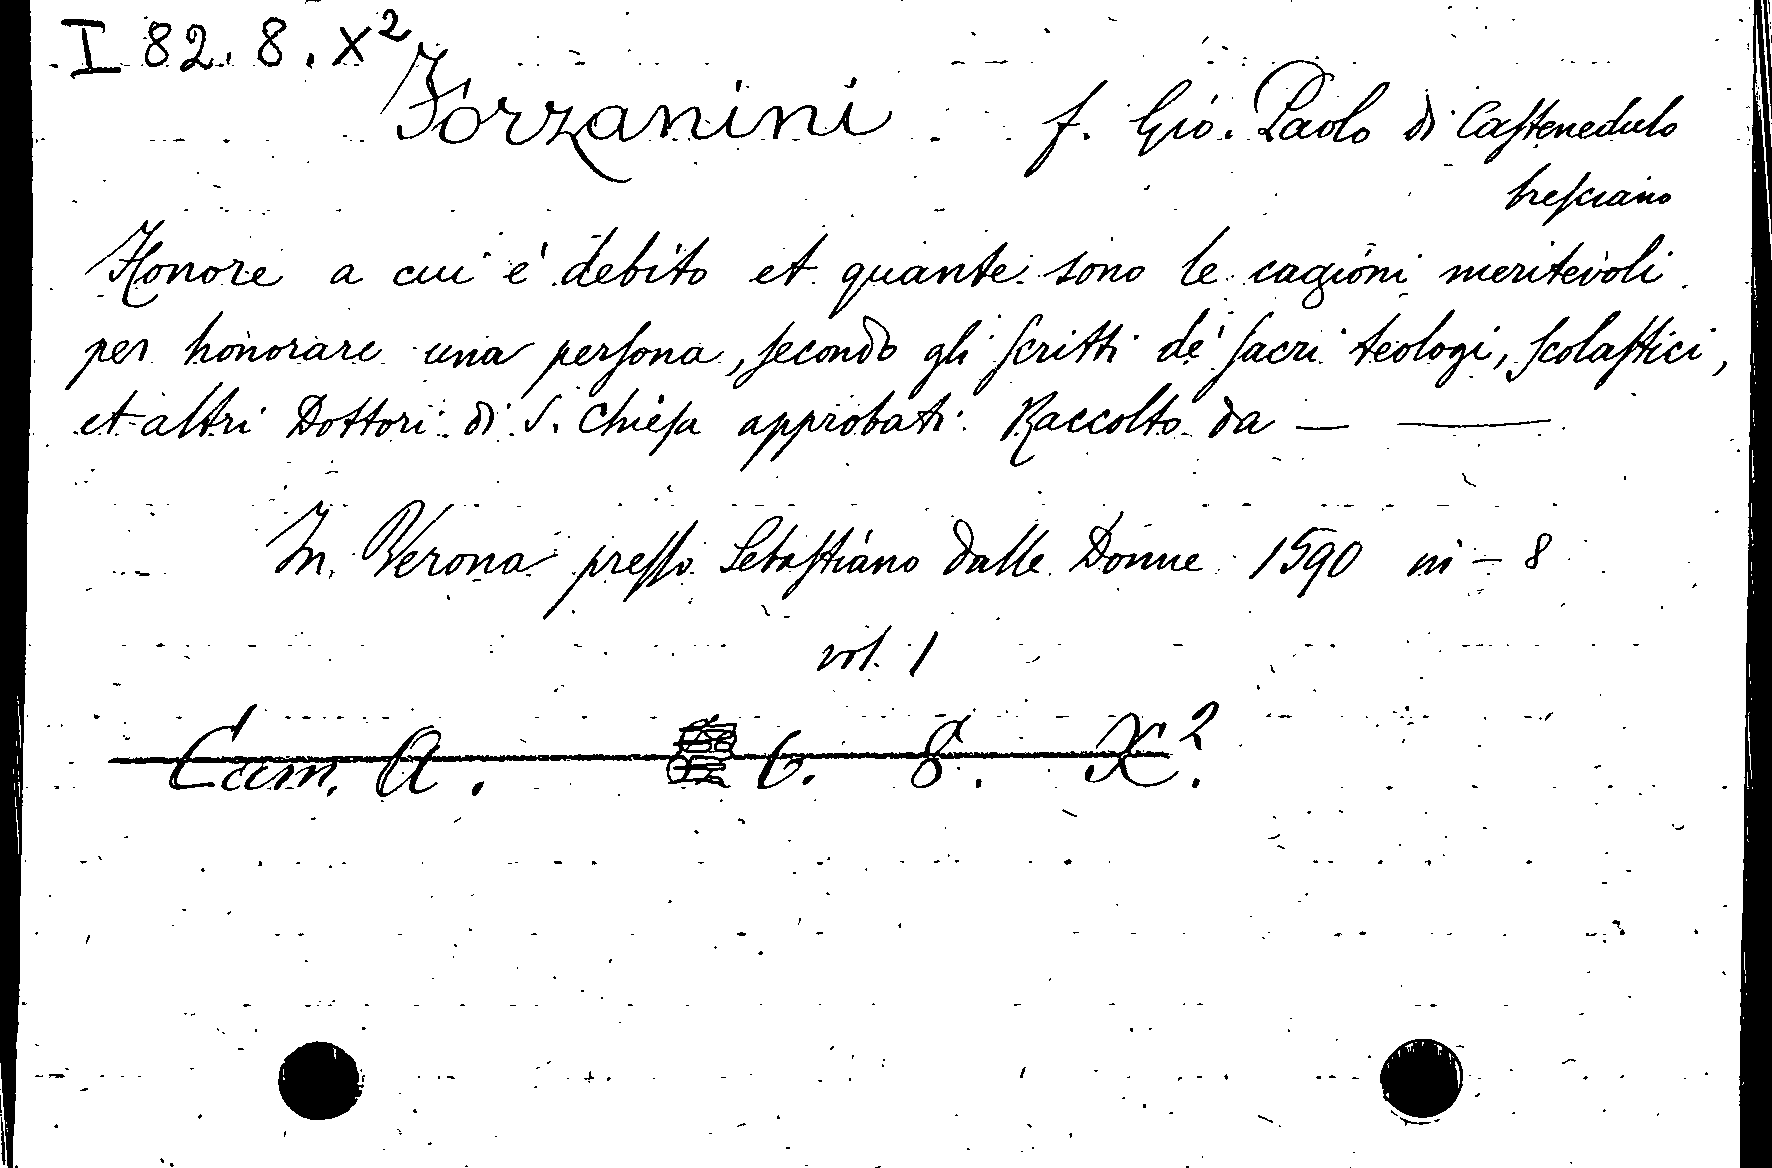 I 82. 8. X²
Forzanini f. Gio. Paolo di Castenedulo
bresciano
Honore a cui è debito et quante sono le cagioni meritevoli
per honorare una persona, secondo gli scritti de' sacri teologi, scolastici,
et altri Dottori di S. Chiesa approbati. Raccolto da — —
In Verona presso Sebastiano dalle Donne 1590 in-8
vol. 1
Cam. A. 6. 8. X².